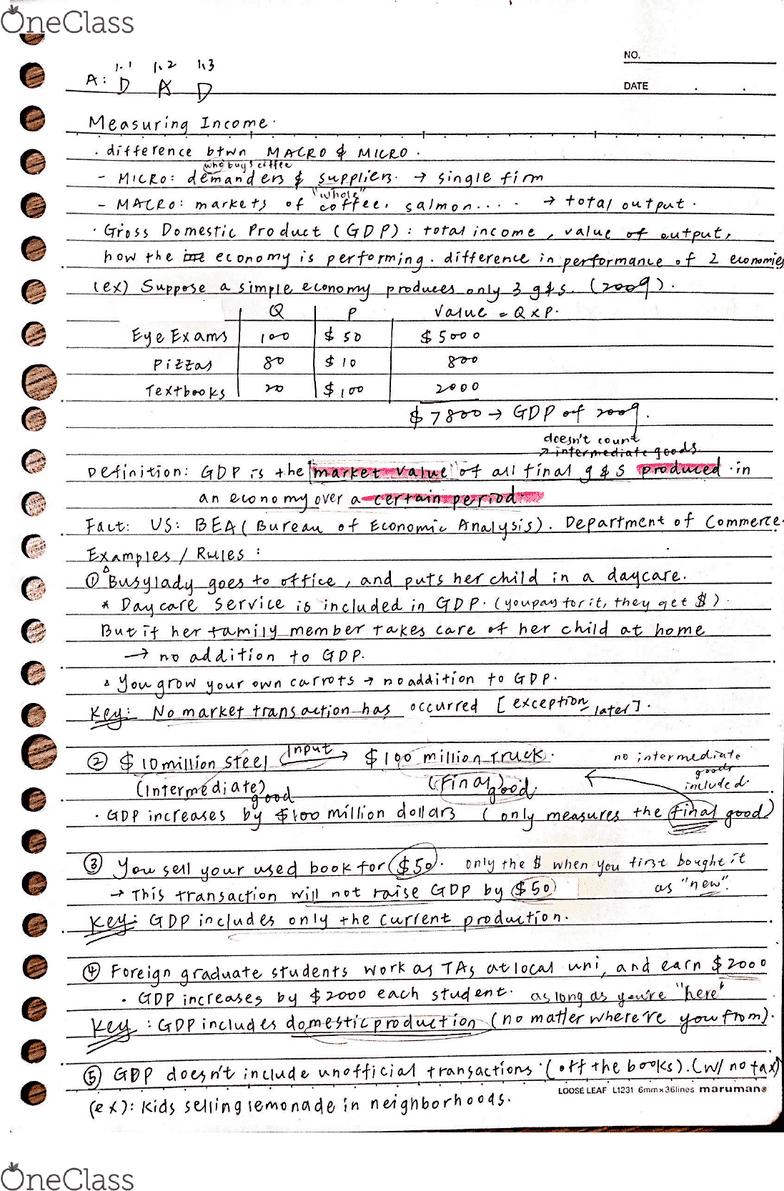 OneClass
NO.
1.1 1.2 1.3
A: D A D
DATE . .
Measuring Income.
. difference btwn MACRO & MICRO.
who buys coffee
- MICRO: demanders & suppliers. → single firm
"whole"
- MACRO: markets of coffee, salmon.... → total output.
· Gross Domestic Product (GDP): total income, value of output,
how the economy is performing. difference in performance of 2 economies
(ex) Suppose a simple economy produces only 3 g&s. (2009).
Q P Value = Q x P.
Eye Exams 100 $50 $5000
Pizzas 80 $10 800
Textbooks 20 $100 2000
$7800 → GDP of 2009.
doesn't count
↗ intermediate goods
Definition: GDP is the market value of all final g&s produced in
an economy over a certain period.
Fact: US: BEA (Bureau of Economic Analysis). Department of Commerce.
Examples / Rules :
① Busylady goes to office, and puts her child in a daycare.
* Daycare service is included in GDP. (you pay for it, they get $).
But if her family member takes care of her child at home
→ no addition to GDP.
▵ You grow your own carrots → no addition to GDP.
Key: No market transaction has occurred [exception later].
② $10 million steel input → $100 million truck. no intermediate
(Intermediate) good (Final) good goods included.
· GDP increases by $100 million dollars (only measures the final good)
③ You sell your used book for $50. only the $ when you first bought it
→ This transaction will not raise GDP by $50 as "new".
Key: GDP includes only the current production.
④ Foreign graduate students work as TAs at local uni, and earn $2000
· GDP increases by $2000 each student. as long as you're "here"
Key: GDP includes domestic production (no matter where're you from).
⑤ GDP doesn't include unofficial transactions. (off the books). (w/ no tax)
LOOSE LEAF L1231 6mm×36lines maruman®
(ex): Kids selling lemonade in neighborhoods.
OneClass